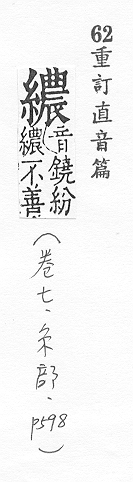 62重訂直音篇
繷
音鐃紛
繷不善
(卷七、糸部、p598)